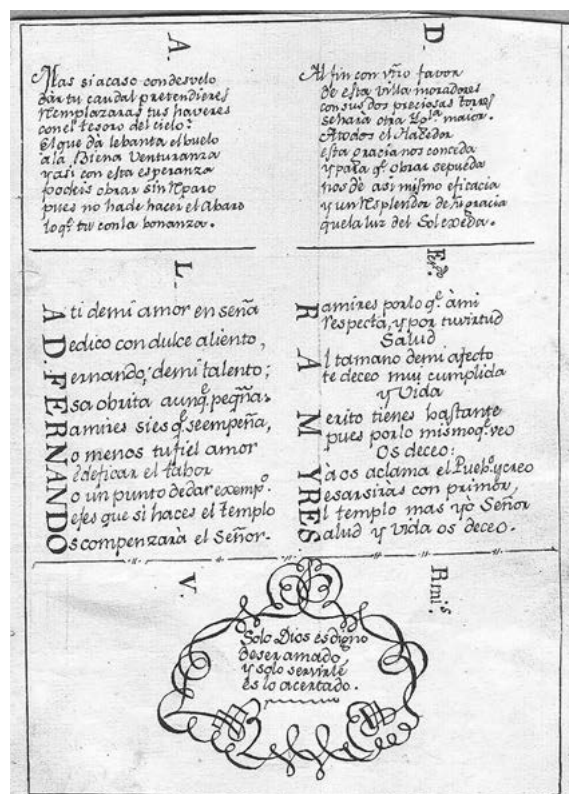 A.
Mas si acaso con desvelo
dàr tu caudal pretendieres
remplazaras tus haveres
con el tesoro del cielo:
El que dà lebanta el buelo
a la Biena Venturanza
y asi con esta esperanza
podeis obrar sin reparo
pues no hade hacer el abaro
lo q.e tu con la bonanza.
D.
Al fin con vr̃o favor
de esta villa moradores
con sus dos preciosas torres
sehara otra maior.
Atodos el Hacedor
esta gracia nos conceda
y para q.e obrar sepueda
nos dè asi mismo eficacia
y un resplendor de gracia
quela luz del Sol exeda.
L.
A ti demi amor en señã
Dedico con dulce aliento,
Fernando, demi talento;
Esa obrita aunq.e peqñã.
Ramires sies q.e seempeña,
No menos tu fiel amor
Aedeficar el tabor
No un punto dedar exemp.o
Dejes que si haces el templo
Os compenzarà el Señor.
Fer.do
Ramires porlo q.e àmi
respecta, y por tu virtud
Salud
Al tamano demi afecto
te deceo mui cumplida
y Vida
Merito tienes bastante
pues porlo mismo q.e veo
Os deceo:
Yà os aclama el Pueb.o y creo
Resarsiràs con primor,
El templo mas yò Señor
Salud y Vida os deceo.
V.
Rmi.s
Solo Dios es digño
deser amado,
y solo servirle
es lo acertado.